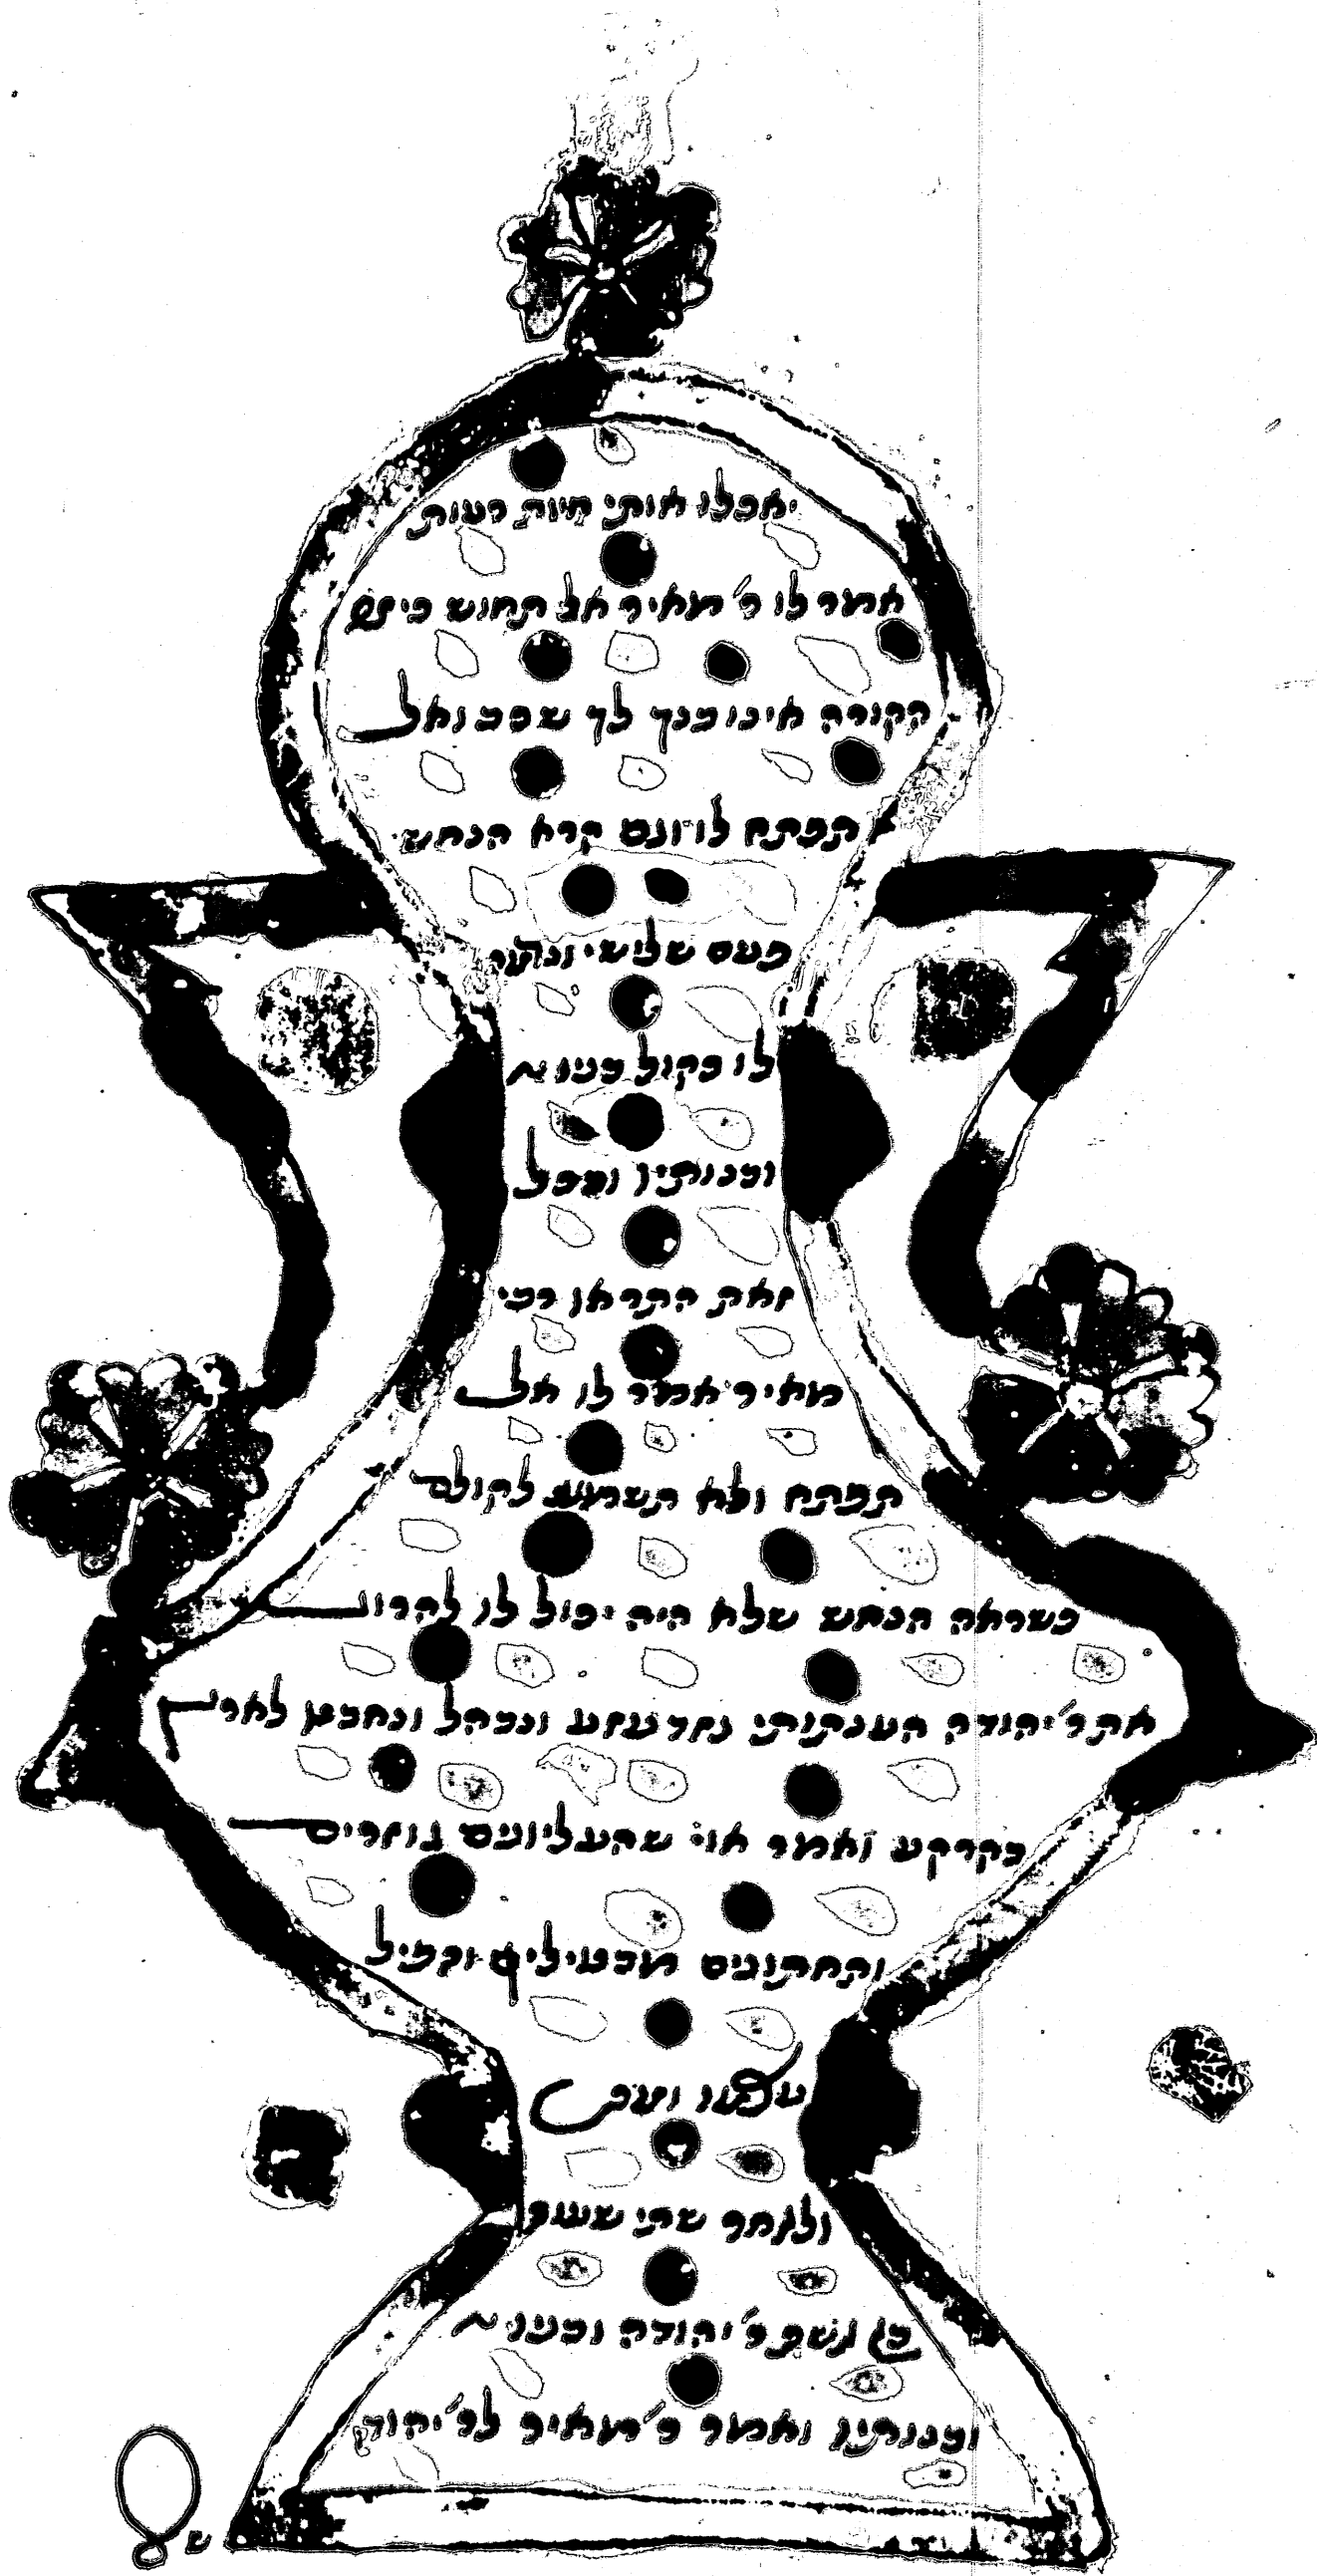 יאכלו אותי חיות רעות
אמר לו ר׳ מאיר אל תחוש כי זו
הקורה אינו מנך לך שממנו אל
תפתח לו וגם קרא הנחש
פעם שלישי ונדמה
לו כקול בניו
ובנותיו ומכל
זאת התראו רבי
מאיר אמר לו אל
תפתח ולא תשמע לקולם
כשראה הנחש שלא היה יכול לו להרוג
את ר׳ יהודה הענתותי נזדעזע ונבהל ונחבט לארץ
בקרקע ואמר אוי שהעליונים גוזרים
והתחתונים מבטילים וכפיל
עצמו ועפ
ולאחר שתי שעות
בן נשף ר׳ יהודה ובניו
ובנותיו ואמר ר׳ מאיר לר׳ יהודה